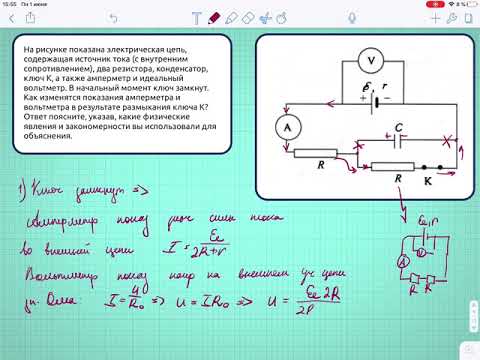 15:55 Пн 1 июня
8 %
На рисунке показана электрическая цепь,
содержащая источник тока (с внутренним
сопротивлением), два резистора, конденсатор,
ключ К, а также амперметр и идеальный
вольтметр. В начальный момент ключ замкнут.
Как изменятся показания амперметра и
вольтметра в результате размыкания ключа К?
Ответ поясните, указав, какие физические
явления и закономерности вы использовали для
объяснения.
V
, r
+ −
A
R
+ C −
R
K
1) Ключ замкнут =>
Амперметр показ силы тока
во внешней цепи I = ℰ/(2R+r)
Вольтметр показ напр на внешнем уч цепи
Ома: I = U/R₀ => U = IR₀ => U = ℰ2R/2R
ℰ, r
A
R R